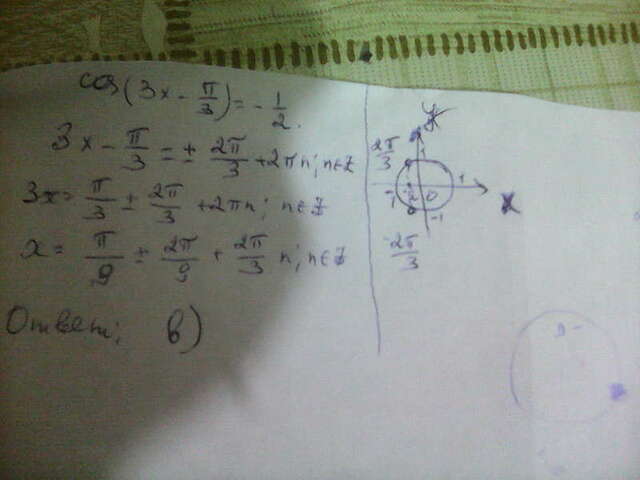 cos(3x - π/3) = - 1/2.
3x - π/3 = ± 2π/3 + 2πn; n∈Z
3x = π/3 ± 2π/3 + 2πn; n∈Z
x = π/9 ± 2π/9 + 2π/3 n; n∈Z
Ответ: в)
2π/3
1
1
-1
0
-1
-2π/3